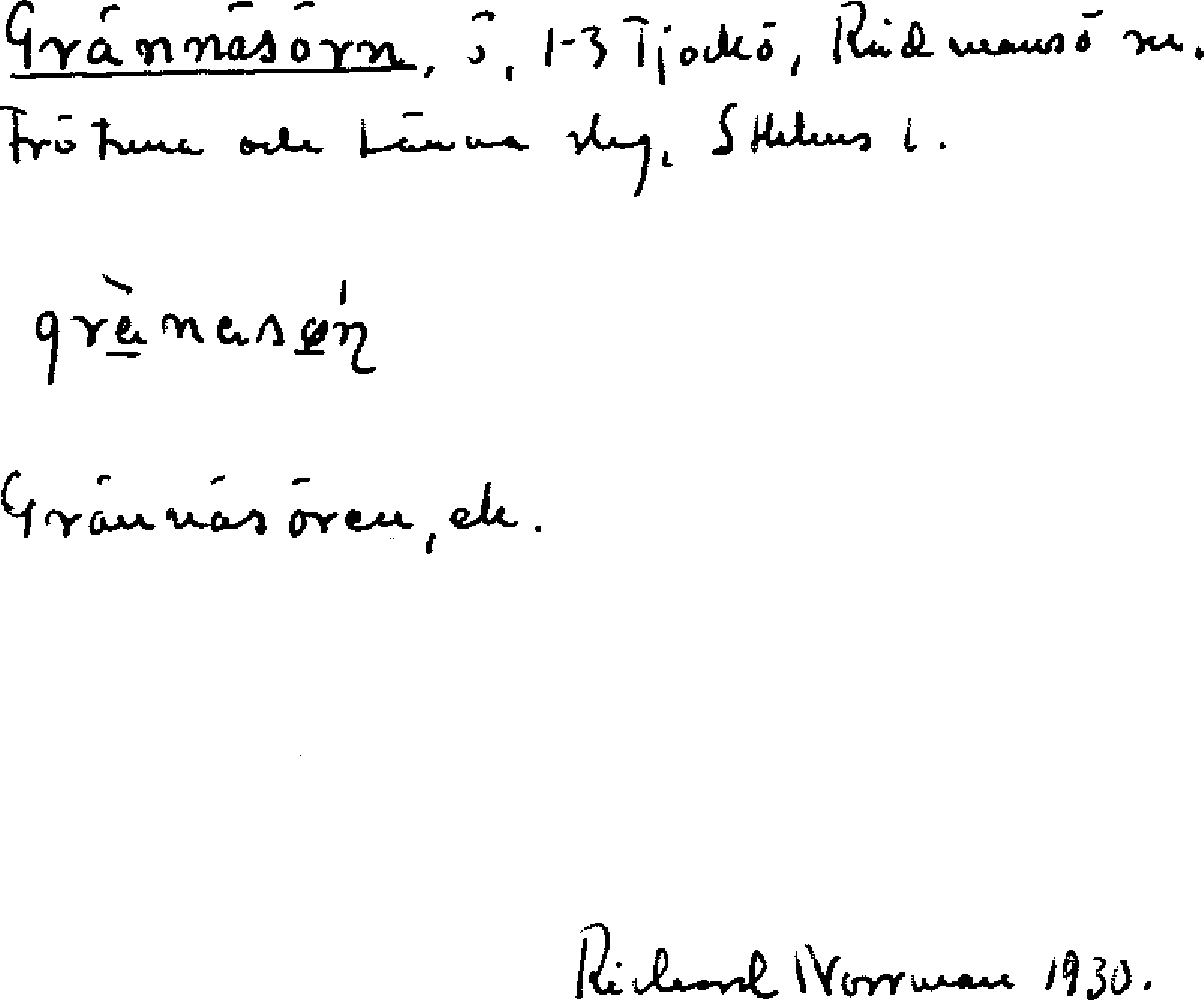 Grännäsörn, ö, 1-3 Tjockö, Rådmansö sn.
Frötuna och Länna slg, Sthlms l.
grä̀nasǿɳ
Grännäsören, ek.
Richard Norrman 1930.